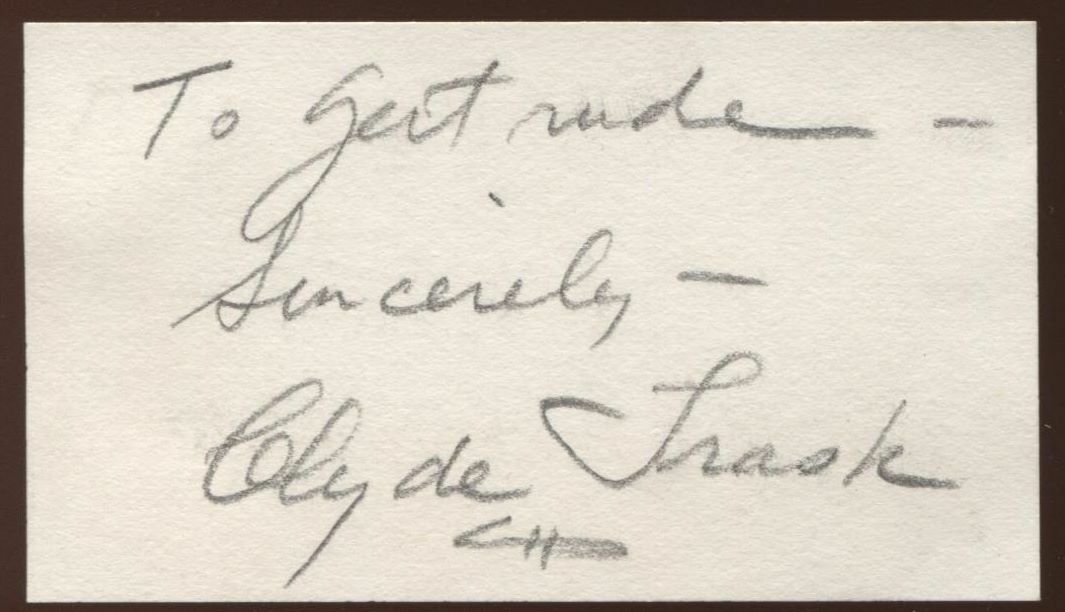 To Gertrude —
Sincerely —
Clyde Trask